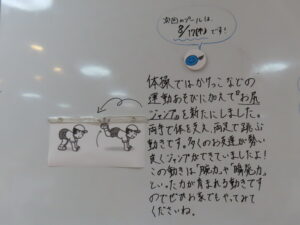 次回のプールは
8/17(木)です!
体操ではかけっこなどの
運動あそびに加えて『お尻
ジャンプ』を新たにしました。
両手で体を支え、両足で跳ぶ
動きです。多くのお友達が勢い
良くジャンプができていましたよ!
この動きは「腕力」や「瞬発力」
といった力が育まれる動きです
のでぜひお家でもやってみて
くださいね。